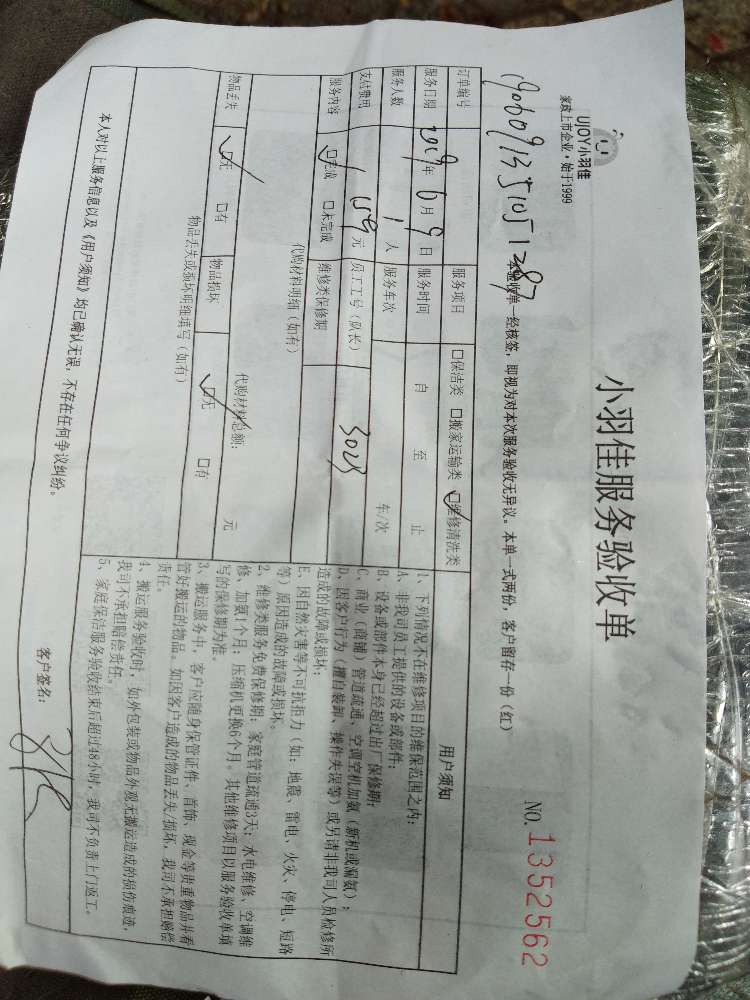 UJOY小羽佳
家政上市企业·始于1999
小羽佳服务验收单
NO.1352562
本验收单一经核签，即视为对本次服务验收无异议。本单一式两份，客户留存一份（红）
订单编号
服务项目 □保洁类 □搬家运输类 ☑维修清洗类
服务日期 2019年6月9日 服务时间 自 至 止
服务人数 1人 服务车次 车/次
支付费用 159元 员工工号（队长） 3023
服务内容 ☑完成 □未完成 维修类保修期
代购材料明细（如有）
代购材料总额： 元
物品丢失 ☑无 □有 物品损坏 ☑无 □有
物品丢失或损坏明细填写（如有）
用户须知
1、下列情况不在维修项目的维保范围之内：
A、非我司员工提供的设备或部件；
B、设备或部件本身已经超过出厂保修期；
C、商业（商铺）管道疏通、空调空机加氨（新机或漏氨）；
D、因客户行为（擅自装卸、操作失误等）或另请非我司人员检修所
造成的故障或损坏；
E、因自然灾害等不可抗拒力（如：地震、雷电、火灾、停电、短路
等）原因造成的故障或损坏。
2、维修类服务免费保修期：家庭管道疏通3天；水电维修、空调维
修、加氨1个月；压缩机更换6个月。其他维修项目以服务验收单填
写的保修期为准。
3、搬运服务中，客户应随身保管证件、首饰、现金等贵重物品并看
管好搬运的物品。如因客户造成的物品丢失/损坏，我司不承担赔偿
责任。
4、搬运服务验收时，如外包装或物品外观无搬运造成的损伤痕迹，
我司不承担赔偿责任。
5、家庭保洁服务验收结束后超过48小时，我司不负责上门返工。
本人对以上服务信息以及《用户须知》均已确认无误，不存在任何争议纠纷。
客户签名：